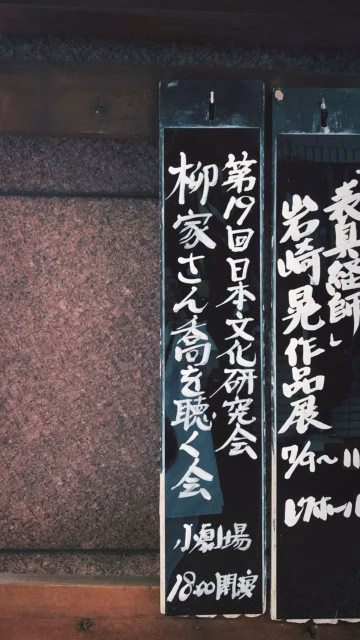 表具経師
岩崎晃作品展
7/9〜11
第19回日本文化研究会
柳家さん喬を聴く会
小劇場
18:00開演